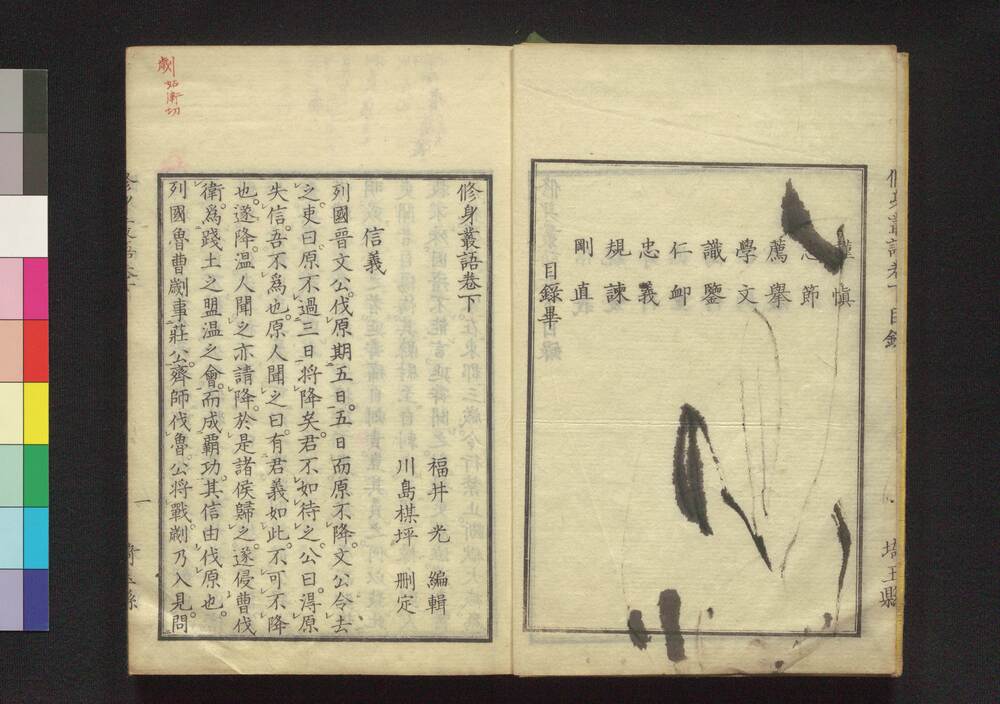 埼玉縣
愼
節
薦擧
學文
識鑒
仁卹
忠義
規諫
剛直
目録畢
修身叢語卷下
福井　光　編輯
川島楳坪　刪定
信義
列國晉文公。伐原期五日。五日而原不降。文公令去
之。吏曰。原不過三日將降矣。君不如待之。公曰。得原
失信。吾不爲也。原人聞之曰。有君義如此。不可不降
也。遂降。温人聞之亦請降。於是諸侯歸之。遂侵曹伐
衛。爲踐土之盟温之會。而成覇功。其信由伐原也。
列國魯曹劌事莊公。齊師伐魯。公將戰。劌乃入見。問
劌
姑衛切
一